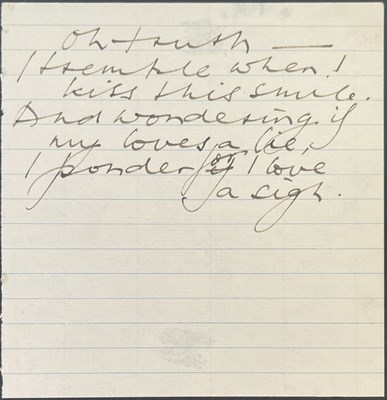 Oh truth —
I tremble when I
kiss this smile.
And wondering if
my loves a lie,
I ponder if or I love
a sigh.